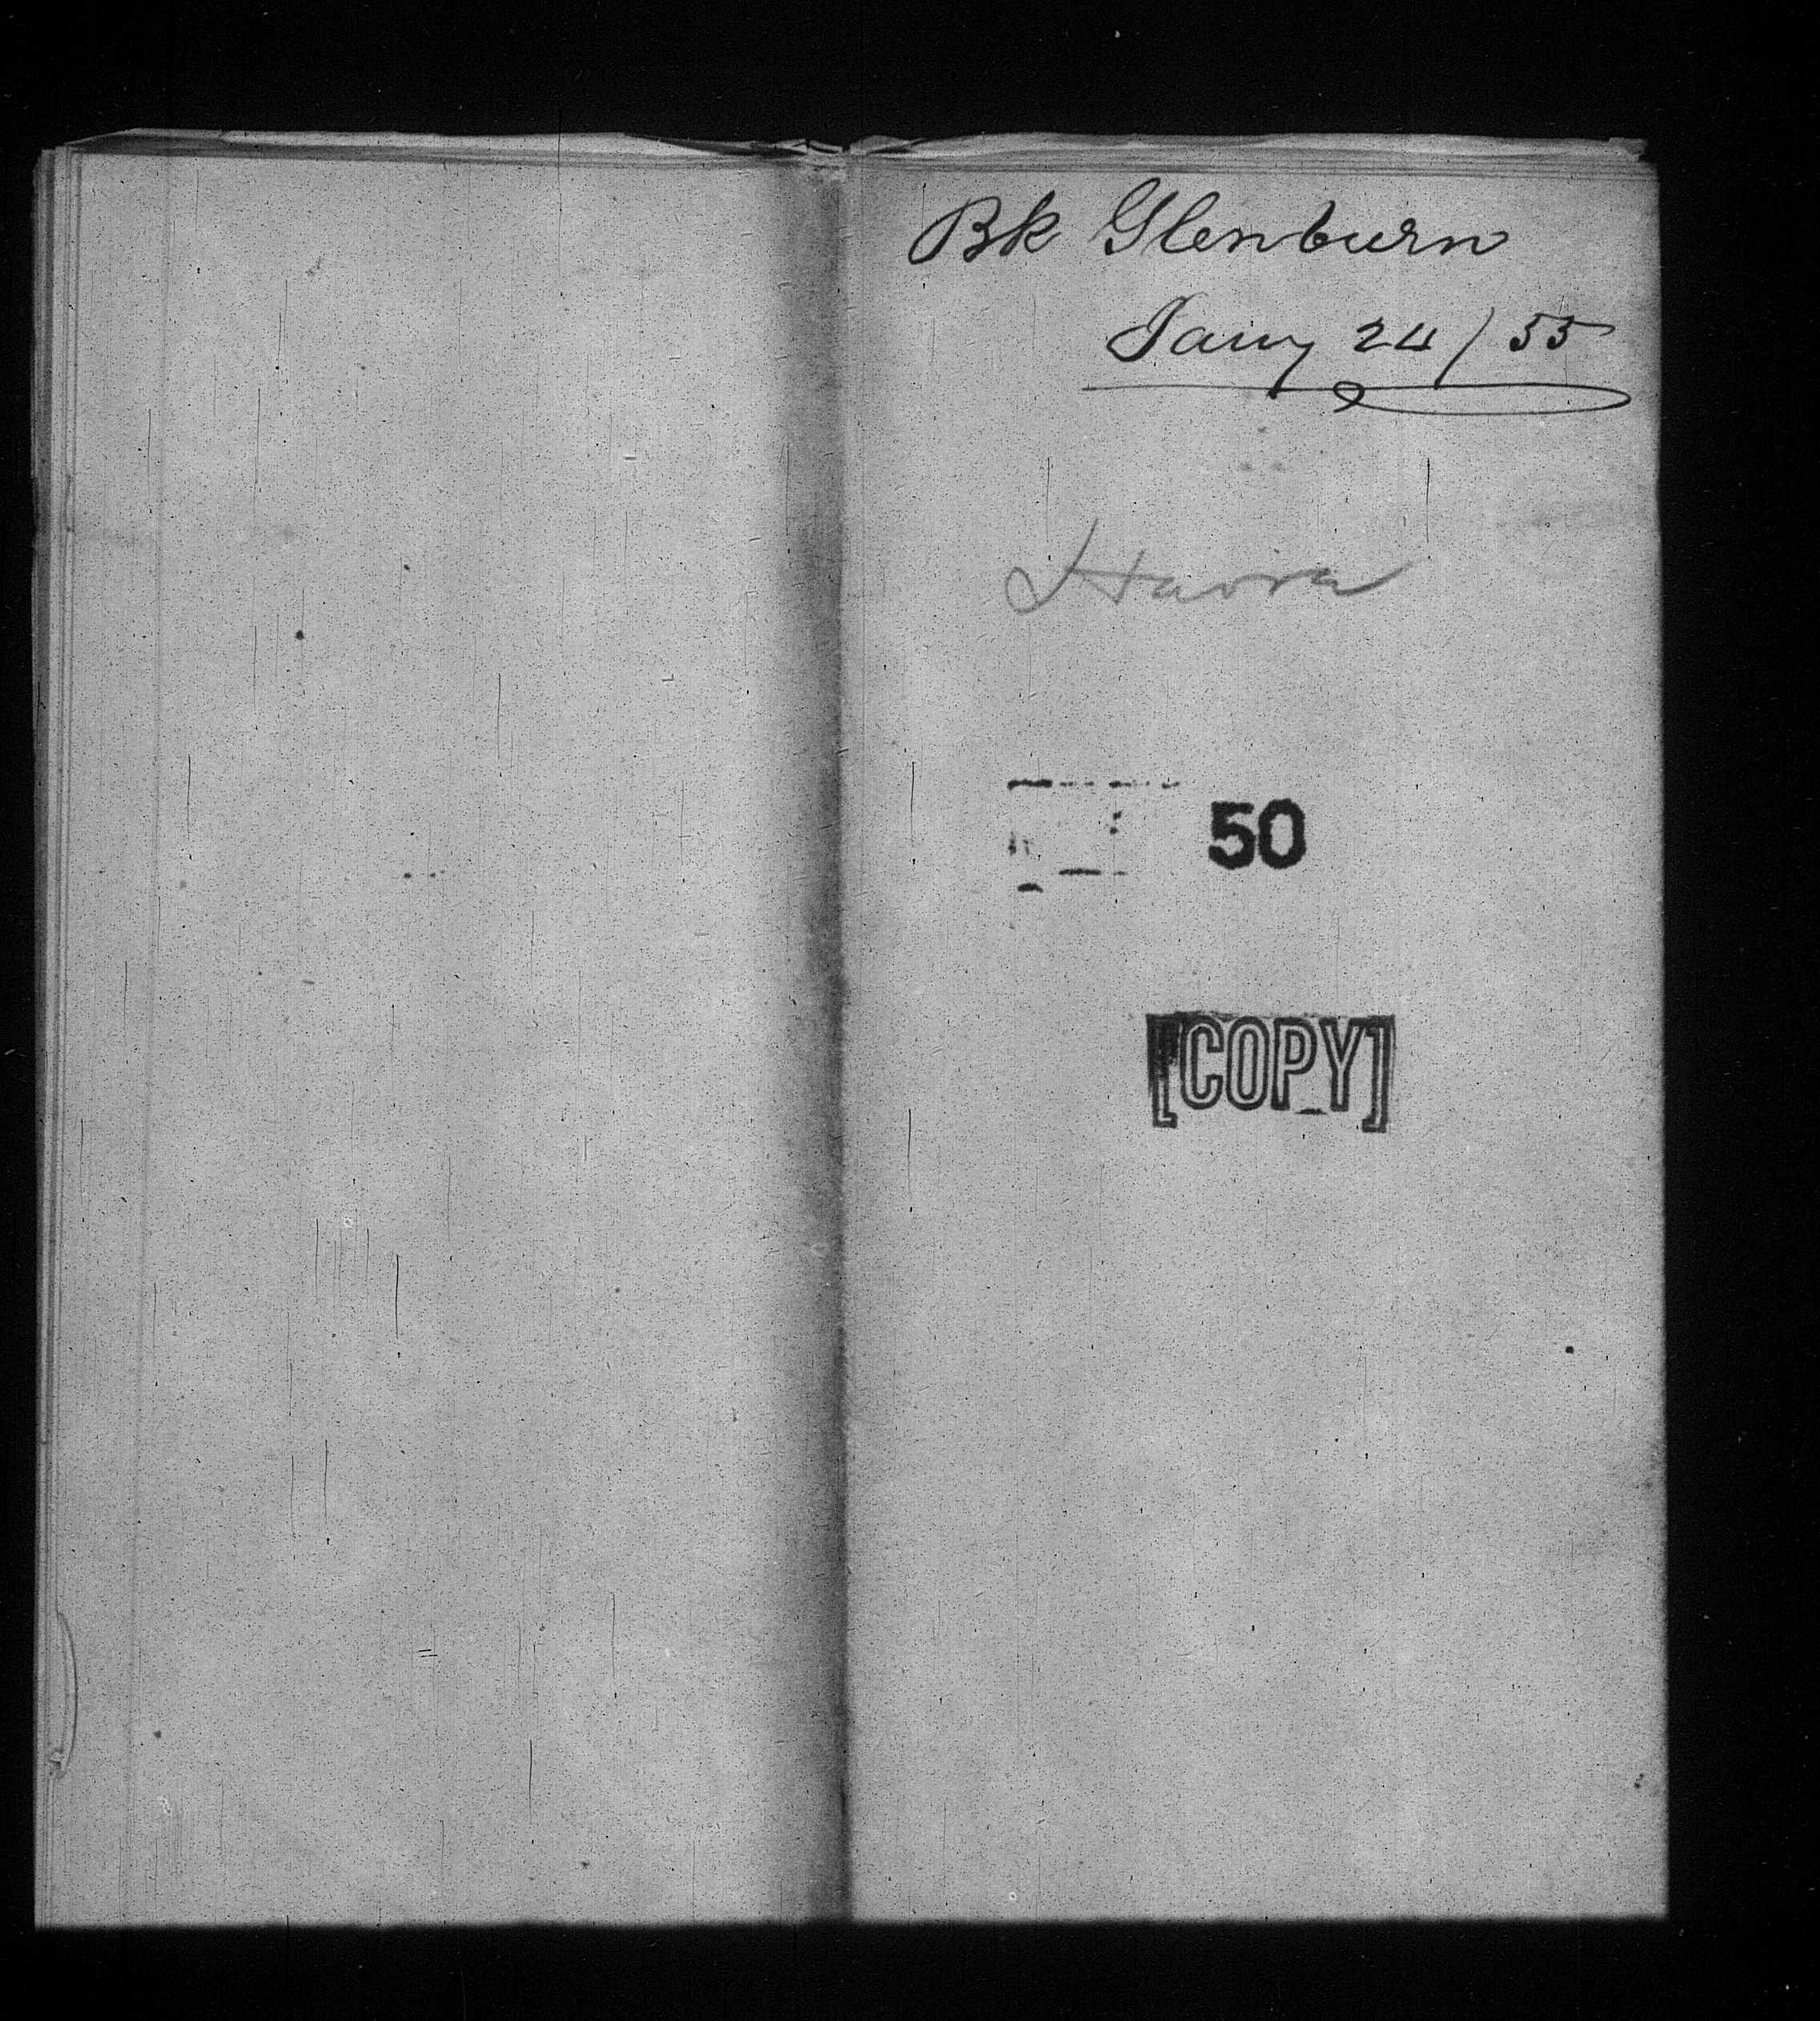 Bk Glenburn
Jany 24/55
50
[COPY]